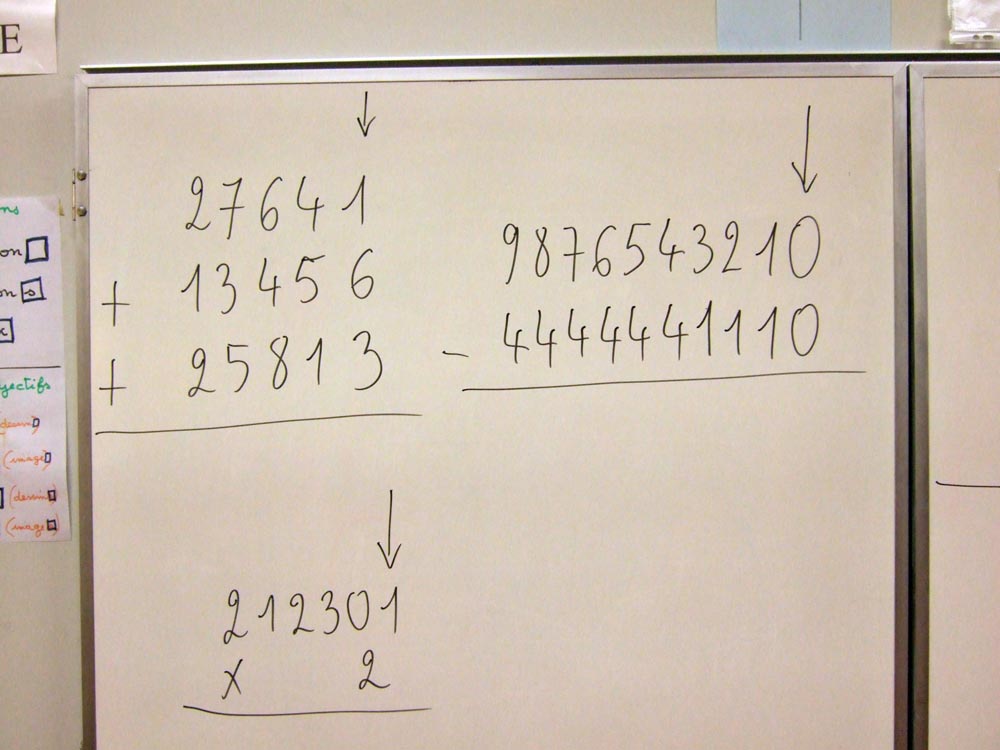 E
ns
on
on s
x
jectifs
(dessin)
(image)
(dessin)
(image)
↓
27641
+ 13456
+ 25813
↓
9876543210
- 4444441110
↓
212301
x 2